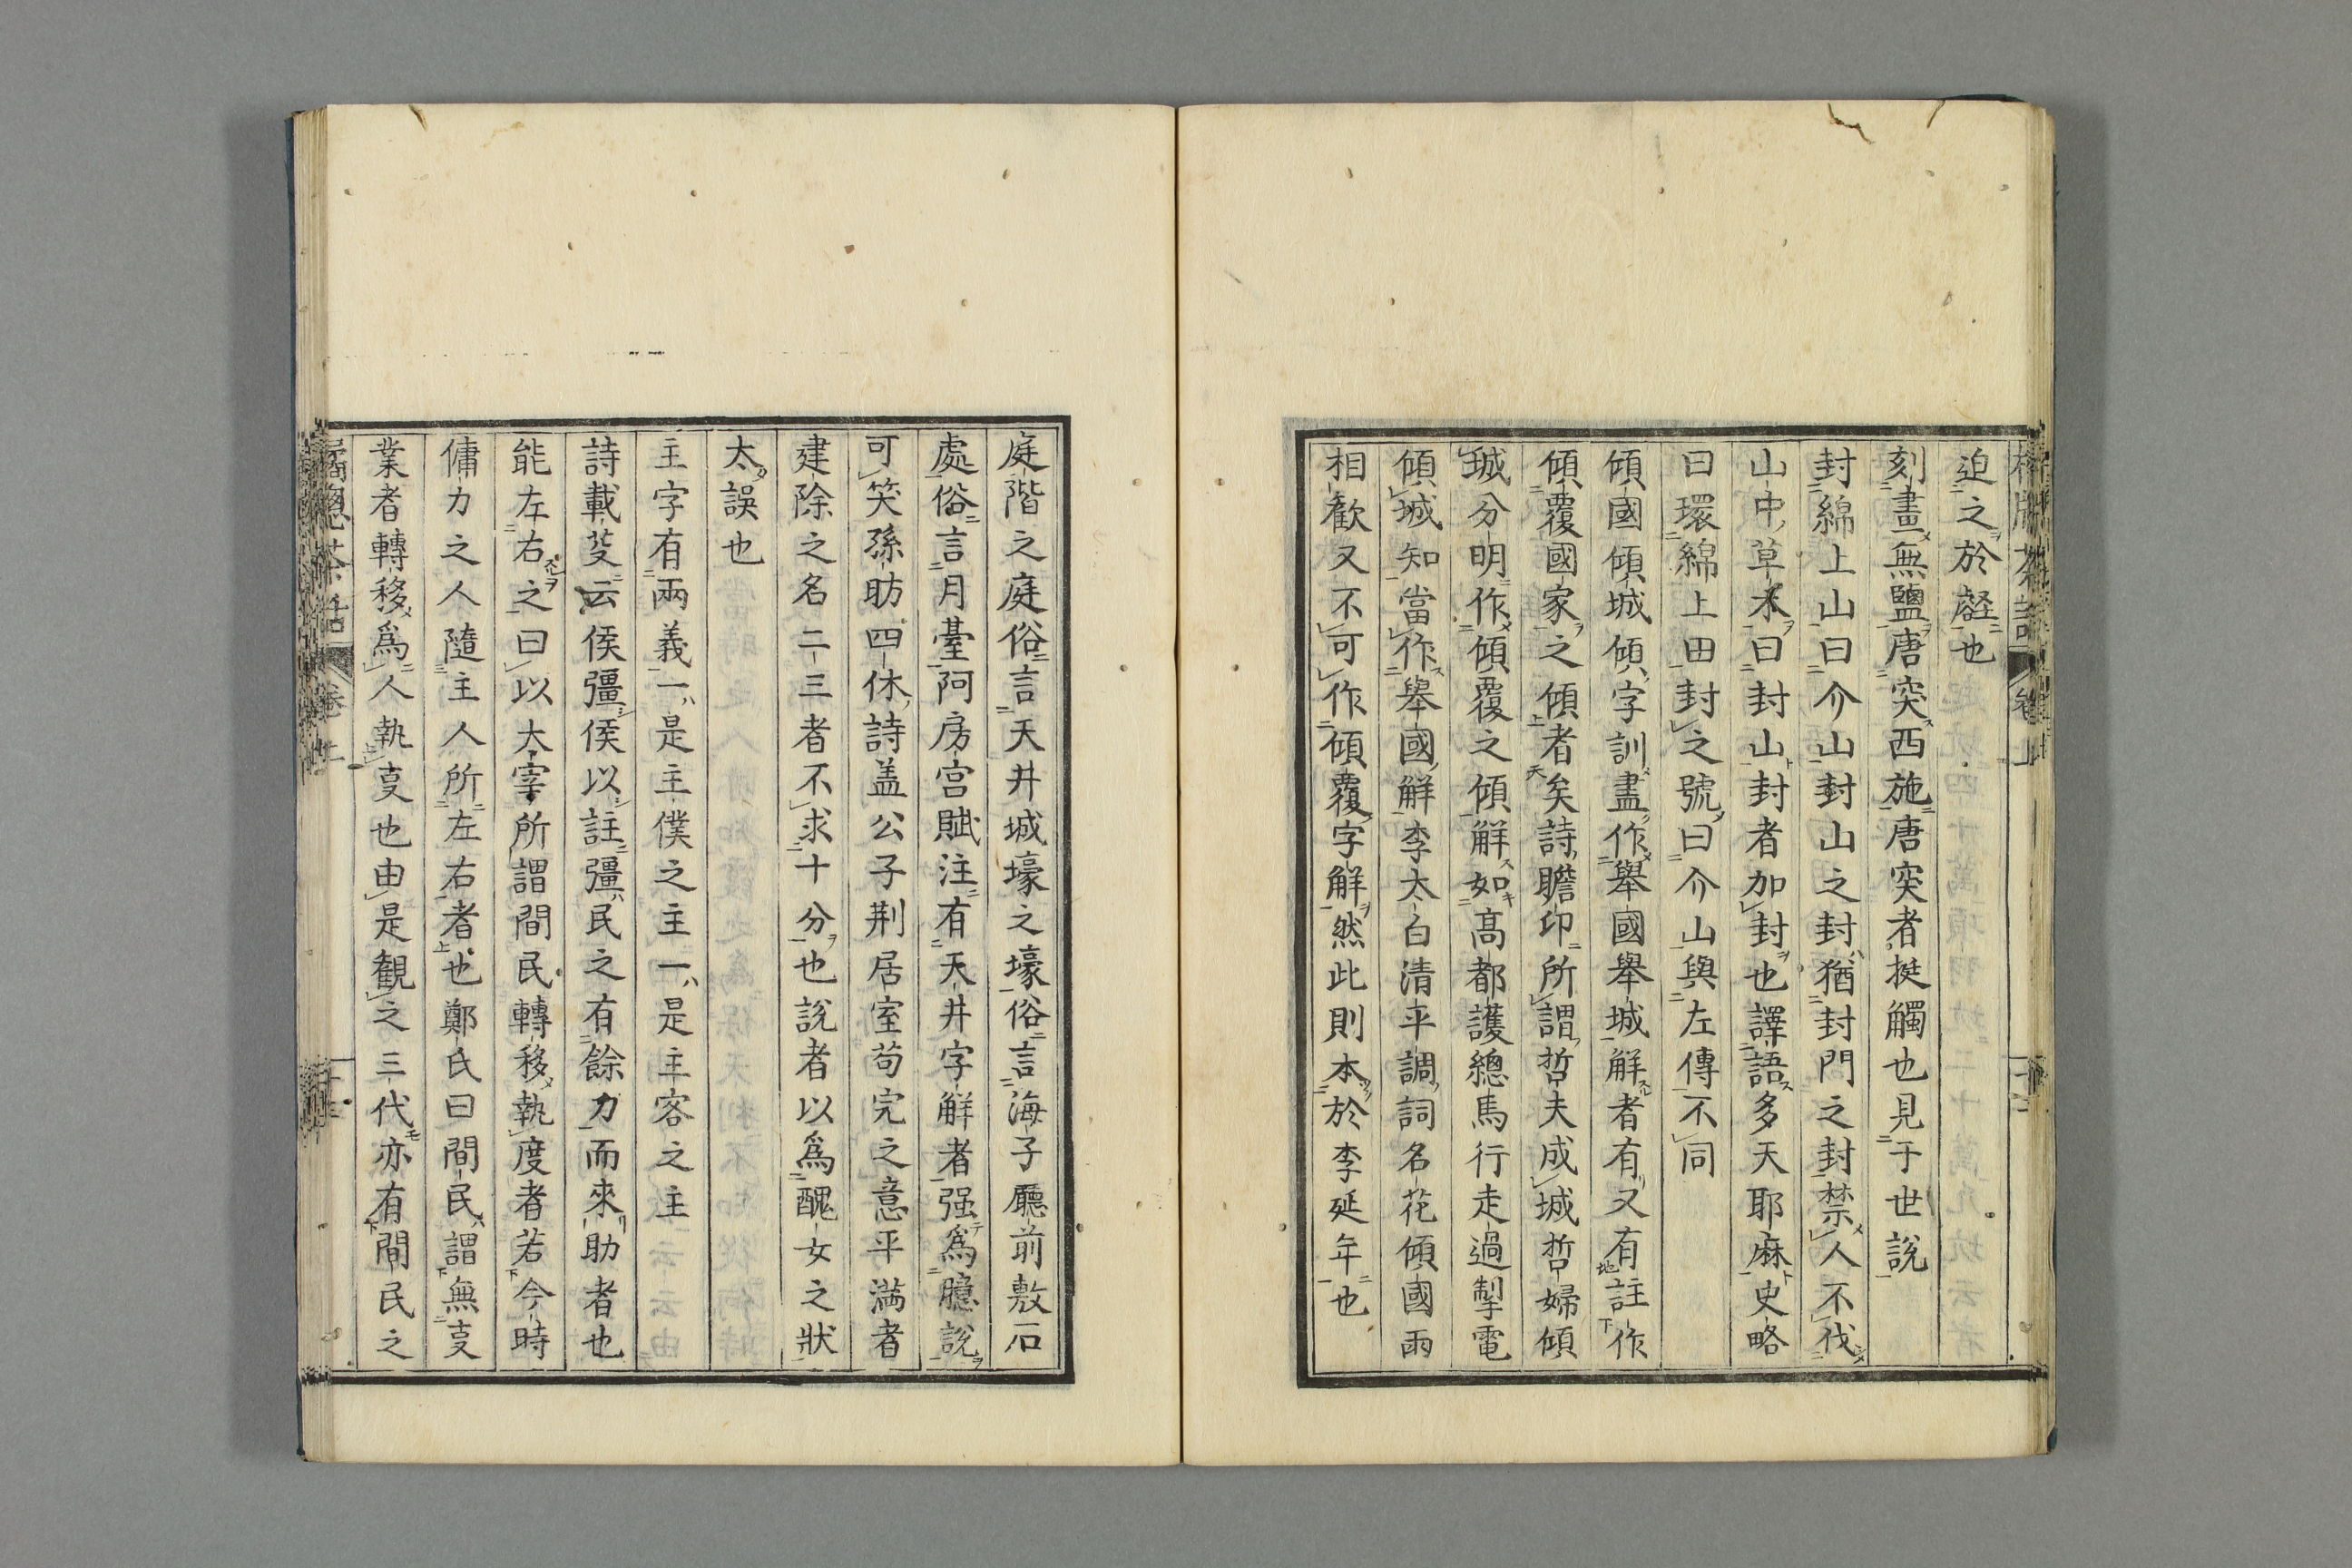 迫之於壑也
刻畫無鹽唐突西施唐突者挺觸也見于世說
封綿上山曰介山封山之封猶封門之封禁人不伐
山中草木曰封山封者加封也譯語多天耶麻史略
曰環綿上田封之號曰介山與左傳不同
傾國傾城傾字訓盡作舉國舉城解者有又有註作
傾覆國家之傾者矣詩瞻卬所謂哲夫成城哲婦傾
城分明作傾覆之傾解如高都護總馬行走過掣電
傾城知當作舉國解李太白清平調詞名花傾國兩
相歡又不可作傾覆字解然此則本於李延年也
庭階之庭俗言天井城壕之壕俗言海子廳前敷石
處俗言月臺阿房宮賦注有天井字解者强爲臆說
可笑孫昉四休詩盖公子荆居室苟完之意平滿者
建除之名二三者不求十分也說者以爲醜女之狀
太誤也
主字有兩義一是主僕之主一是主客之主
詩載芟云侯彊侯以註彊民之有餘力而來助者也
能左右之曰以大宰所謂間民轉移執度者若今時
傭力之人隨主人所左右者也鄭氏曰間民謂無㕝
業者轉移爲人執㕝也由是観之三代亦有間民之